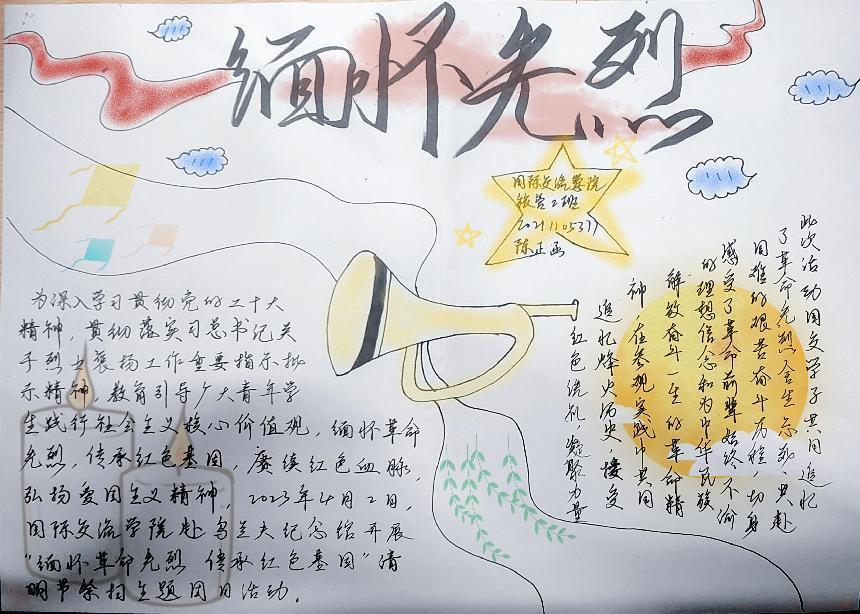 缅怀先烈
国际交流学院
旅管2班
2021110537
陈正函
为深入学习贯彻党的二十大
精神，贯彻落实习总书记关
于烈士褒扬工作重要指示批
示精神，教育引导广大青年学
生践行社会主义核心价值观，缅怀革命
先烈，传承红色基因，赓续红色血脉，
弘扬爱国主义精神，2023年4月2日，
国际交流学院赴乌兰夫纪念馆开展
“缅怀革命先烈 传承红色基因”清
明节祭扫主题团日活动。
此次活动国交学子共同追忆
了革命先烈舍生忘死、共赴
国难的艰苦奋斗历程，切身
感受了革命前辈始终不渝
的理想信念和为中华民族
解放奋斗一生的革命精
神，在参观实践中共同
追忆烽火历史，接受
红色洗礼，凝聚力量